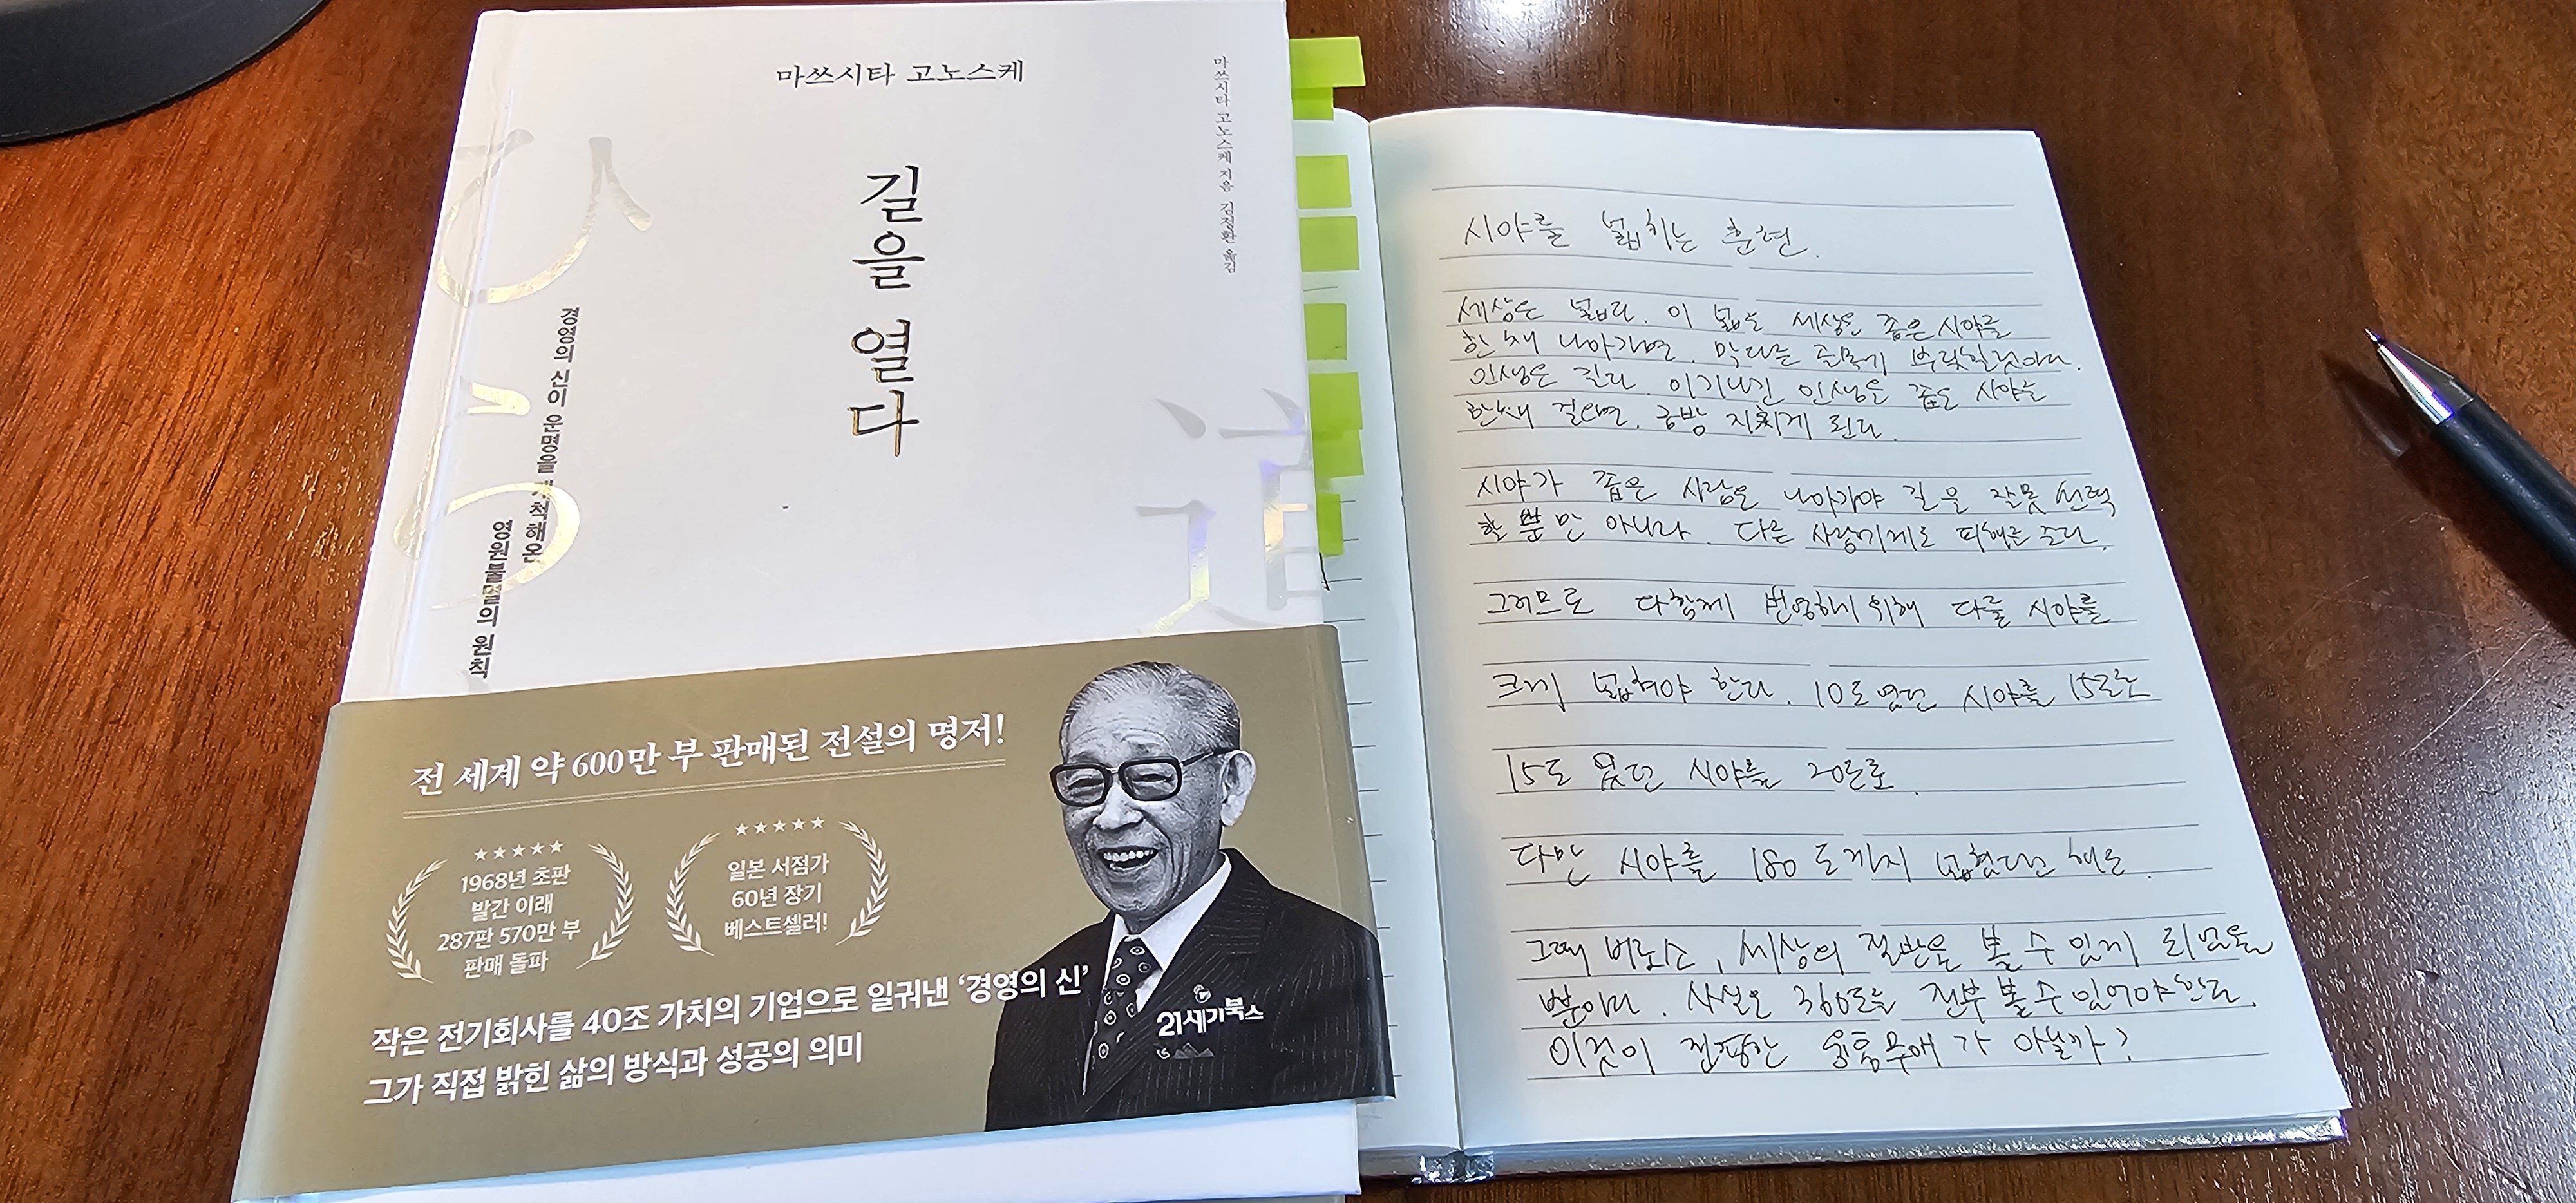 마쓰시타 고노스케
길을 열다
마쓰시타 고노스케 지음 김정환 옮김
경영의 신이 운명을 개척해온
영원불멸의 원칙
ひら
道
전 세계 약 600만 부 판매된 전설의 명저!
★★★★★
1968년 초판
발간 이래
287판 570만 부
판매 돌파
★★★★★
일본 서점가
60년 장기
베스트셀러!
작은 전기회사를 40조 가치의 기업으로 일궈낸 ‘경영의 신’
그가 직접 밝힌 삶의 방식과 성공의 의미
21세기북스
시야를 넓히는 훈련.
세상은 넓다. 이 넓은 세상을 좁은 시야를
한 채 나아가면. 막다른 골목에 부딪힐것이다.
인생은 길다. 이 기나긴 인생을 좁은 시야를
한채 걸으면. 금방 지치게 된다.
시야가 좁은 사람은 나아가야 길을 잘못 선택
할 뿐만 아니라. 다른 사람에게도 피해를 준다.
그러므로 다함께 번영하기 위해 다들 시야를
크게 넓혀야 한다. 10도 였던 시야를 15도로
15도 였던 시야를 20도로.
다만 시야를 180도까지 넓혔다고 해도.
그때 비로소, 세상의 절반을 볼 수 있게 되었을
뿐이다. 사실은 360도를 전부 볼 수 있어야한다.
이것이 진정한 융통무애가 아닐까?